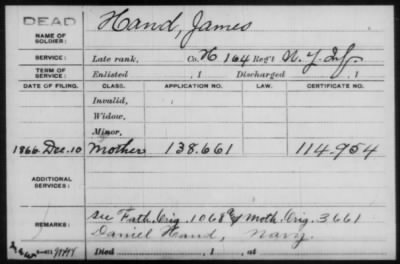 DEAD
Hand, James
NAME OF SOLDIER:
SERVICE: Late rank, Co. H 164 Reg't N.Y. Inf
TERM OF SERVICE: Enlisted , 1 Discharged , 1
DATE OF FILING. CLASS. APPLICATION NO. LAW. CERTIFICATE NO.
Invalid,
Widow,
Minor,
1866 Dec. 10 Mother 138.661 114.954
ADDITIONAL SERVICES:
REMARKS: see Fath. Orig. 1068 & Moth. Orig. 3661
Daniel Hand, Navy.
Died , 1 , at